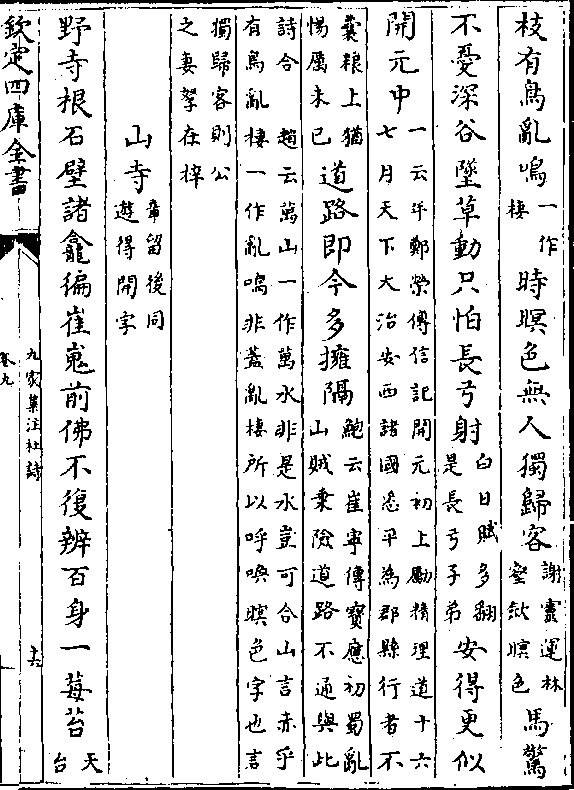 枝有鳥亂鳴一作棲時暝色無人獨歸客謝靈運林壑歛暝色馬驚
不憂深谷墜草動只怕長弓射白日賊多翻是長弓子弟安得更似
開元中一云平鄭榮傳信記開元初上勵精理道十六七月天下大治安西諸國悉平為郡縣行者不
齎粮上猶惕厲未已道路即今多擁隔鮑云崔寧傳寳應初蜀亂山賊乗險道路不通與此
詩合趙云萬山一作萬水非是水豈可合山言赤乎有鳥亂棲一作亂鳴非蓋亂棲所以呼喚暝色字也言
獨歸客則公之妻孥在梓
山寺章留後同遊得開字
野寺根石壁諸龕徧崔嵬前佛不復辨百身一莓苔天台
欽定四庫全書
九家集注杜詩
卷九
十六